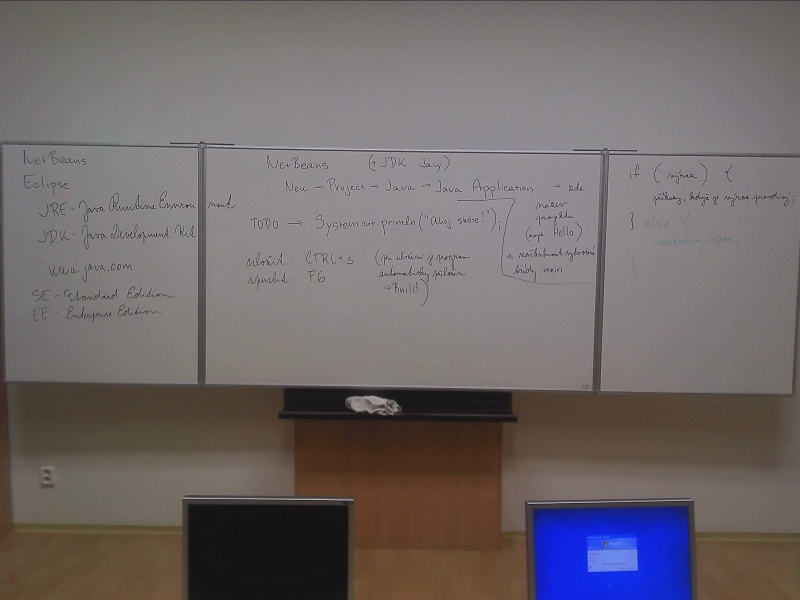 NetBeans
Eclipse
JRE - Java Runtime Environ ment
JDK - Java Development Kit
www.java.com
SE - Standard Edition
EE - Enterprise Edition
NetBeans (+ JDK Javy)
New → Project → Java → Java Application → zde
název
projektu
(např. Hello)
a zaškrtnout vytvoření
třídy main
TODO → System.out.println("Ahoj světe!");
uložit: CTRL+S (při uložení je program
automaticky přeložen
→ Build)
spustit: F6
if (výraz) {
příkazy, když je výraz pravdivý;
} else {
výraz;
}